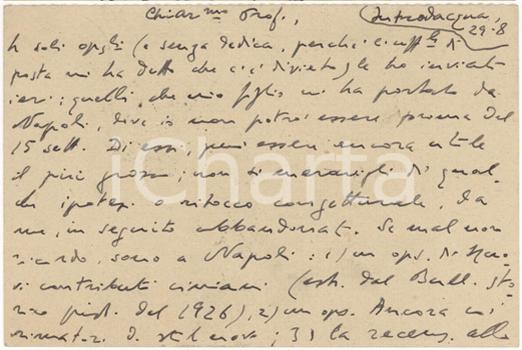 Chiar.mo Prof., Introdacqua,
29.8
soli (e senza dedica, perché l'uff.le di
posta mi ha detto che c'è divieto) le ho inviato
ieri: quelli, che mio figlio mi ha portato da
Napoli, dove io non potrò essere prima del
15 sett. Di essi, può essere ancora utile
il più grosso; non si meravigli di qual-
che ipotesi o ritocco congetturale, da
me, in seguito abbandonat. Se mal non
ricordo, sono a Napoli: 1) un ops. di Nuo-
vi contributi (estr. dal Bull. sto-
rico pist. del 1926), 2) un ops. Ancora
rimatori d. stil novo; 3) la recens. alle
iCharta